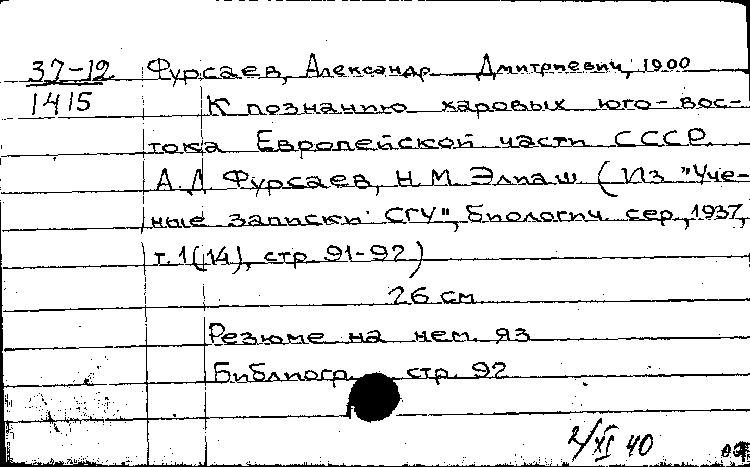 37-12 Фурсаев, Александр Дмитриевич, 1900
1415 К познанию харовых юго-вос-
тока Европейской части СССР.
А.Д. Фурсаев, Н.М. Элпаш (Из "Уче-
ные записки СГУ", Биологич. сер., 1937,
т. 1(14), стр. 91-92)
26 см
Резюме на нем. яз
Библиогр. стр. 92
2/XI 40